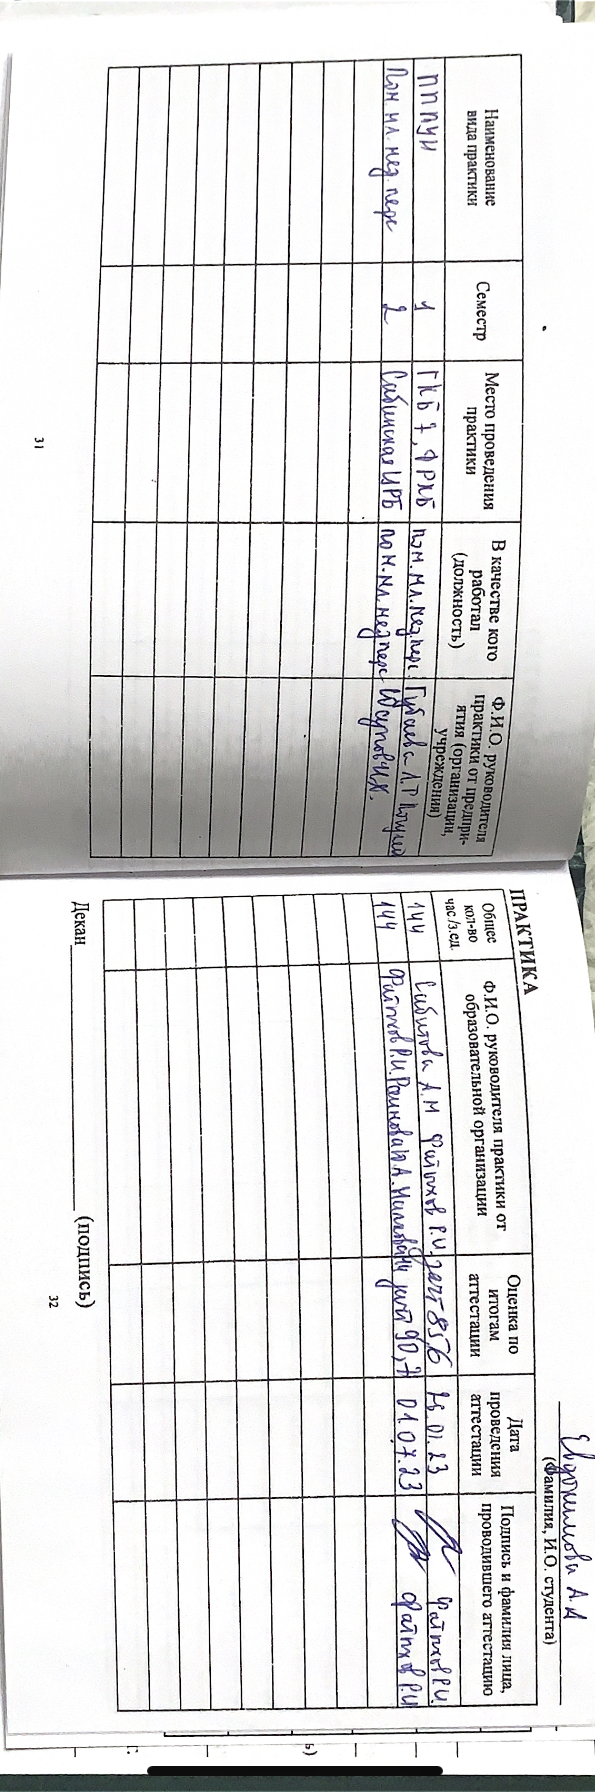 ПРАКТИКА
Евдокимова А.А
(Фамилия, И.О. студента)
Наименование вида практики
Семестр
Место проведения практики
В качестве кого работал (должность)
Ф.И.О. руководителя практики от предпри-ятия (организации, учреждения)
Общее кол-во час /з.ед.
Ф.И.О. руководителя практики от образовательной организации
Оценка по итогам аттестации
Дата проведения аттестации
Подпись и фамилия лица, проводившего аттестацию
ПППУИ 1 ГКБ 7, ФРКБ пом. мл. мед перс. Губаева Л.Р 144 Сабитова А.М Фатыхов Р.И. зачт 85,6 25.01.23 Фатыхов Р.И.
Пом. мл. мед. перс 2 Сабинская ЦРБ пом. мл. мед перс Юсупов И.Х. 144 Фатыхов Р.И. зачт 90,7 01.07.23 Фатыхов Р.И
31
Декан (подпись)
32